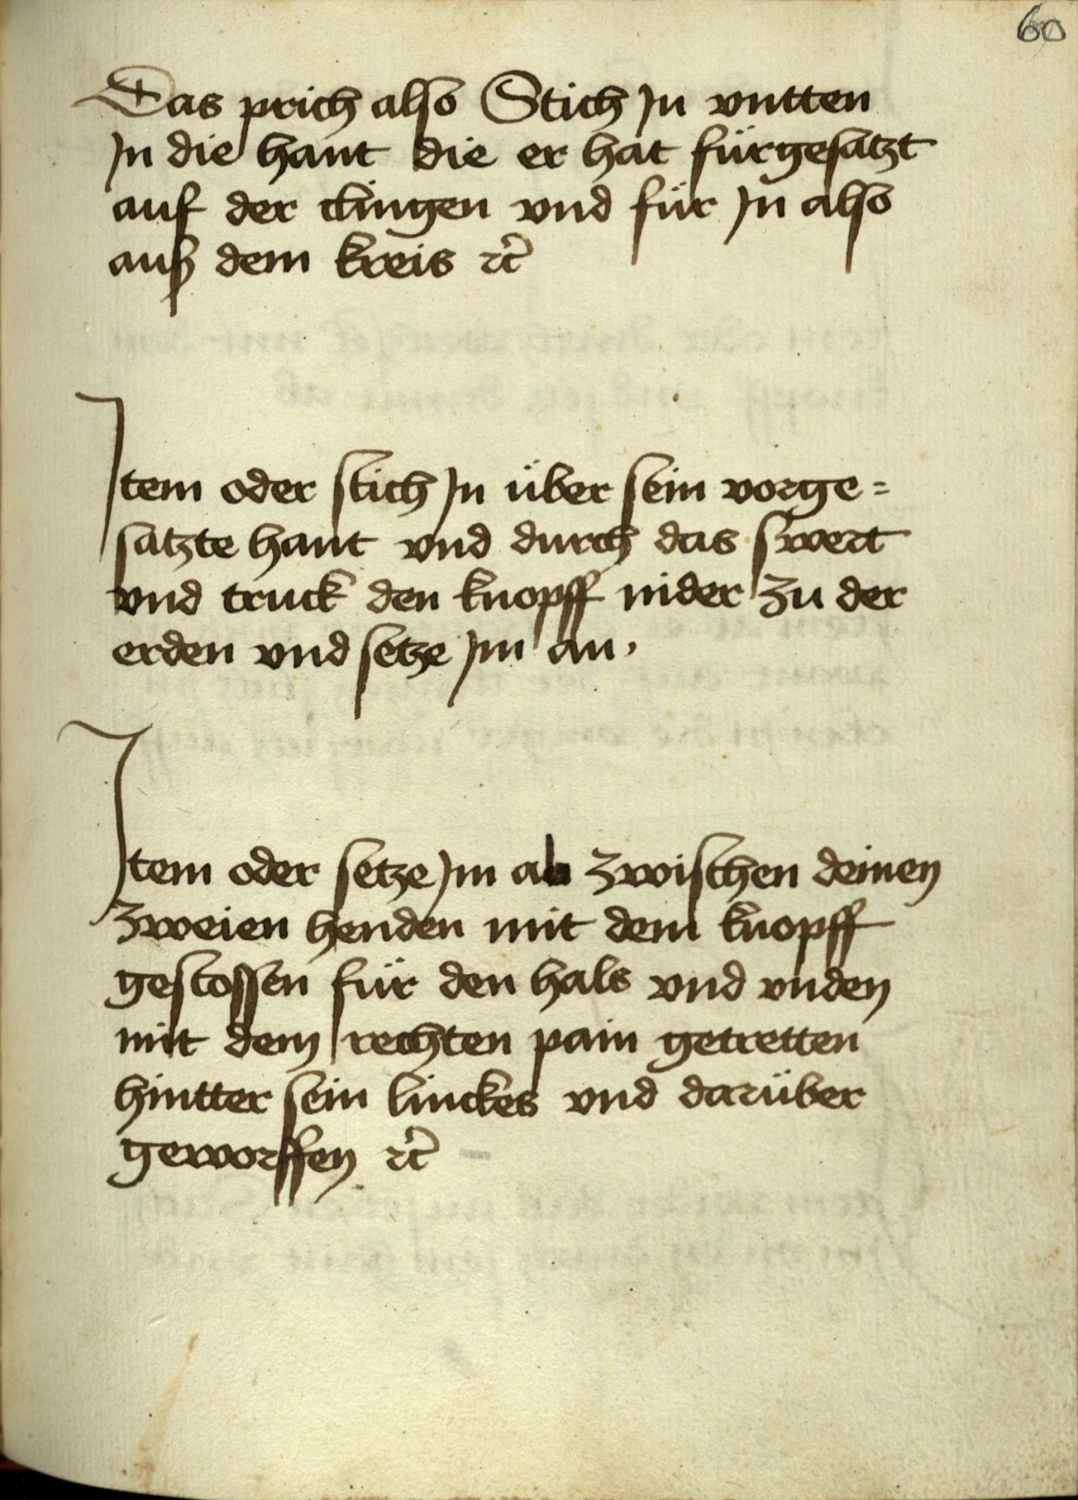 60
Das prich also Stich Jn vntten
Jn die hant die er hat fürgesatzt
auf der clingen vnd für Jn also
auß dem kreis ꝛc̃
Jtem oder stich Jn über sein vorge=
satzte hant vnd durch das swert
vnd truck den knopff nider zu der
erden vnd setze Jm an .
Jtem oder setze Jm ab zwischen deinen
zweien henden mit dem knopff
gestossen für den hals vnd vnden
mit dem rechten pain getretten
hintter sein linckes vnd darüber
geworffen ꝛc̃